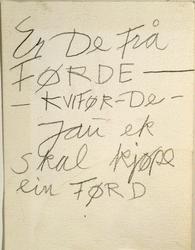 Er De frå
FØRDE —
— KVIFØR-De-
Jau ek
skal kjøpe
ein FØRD